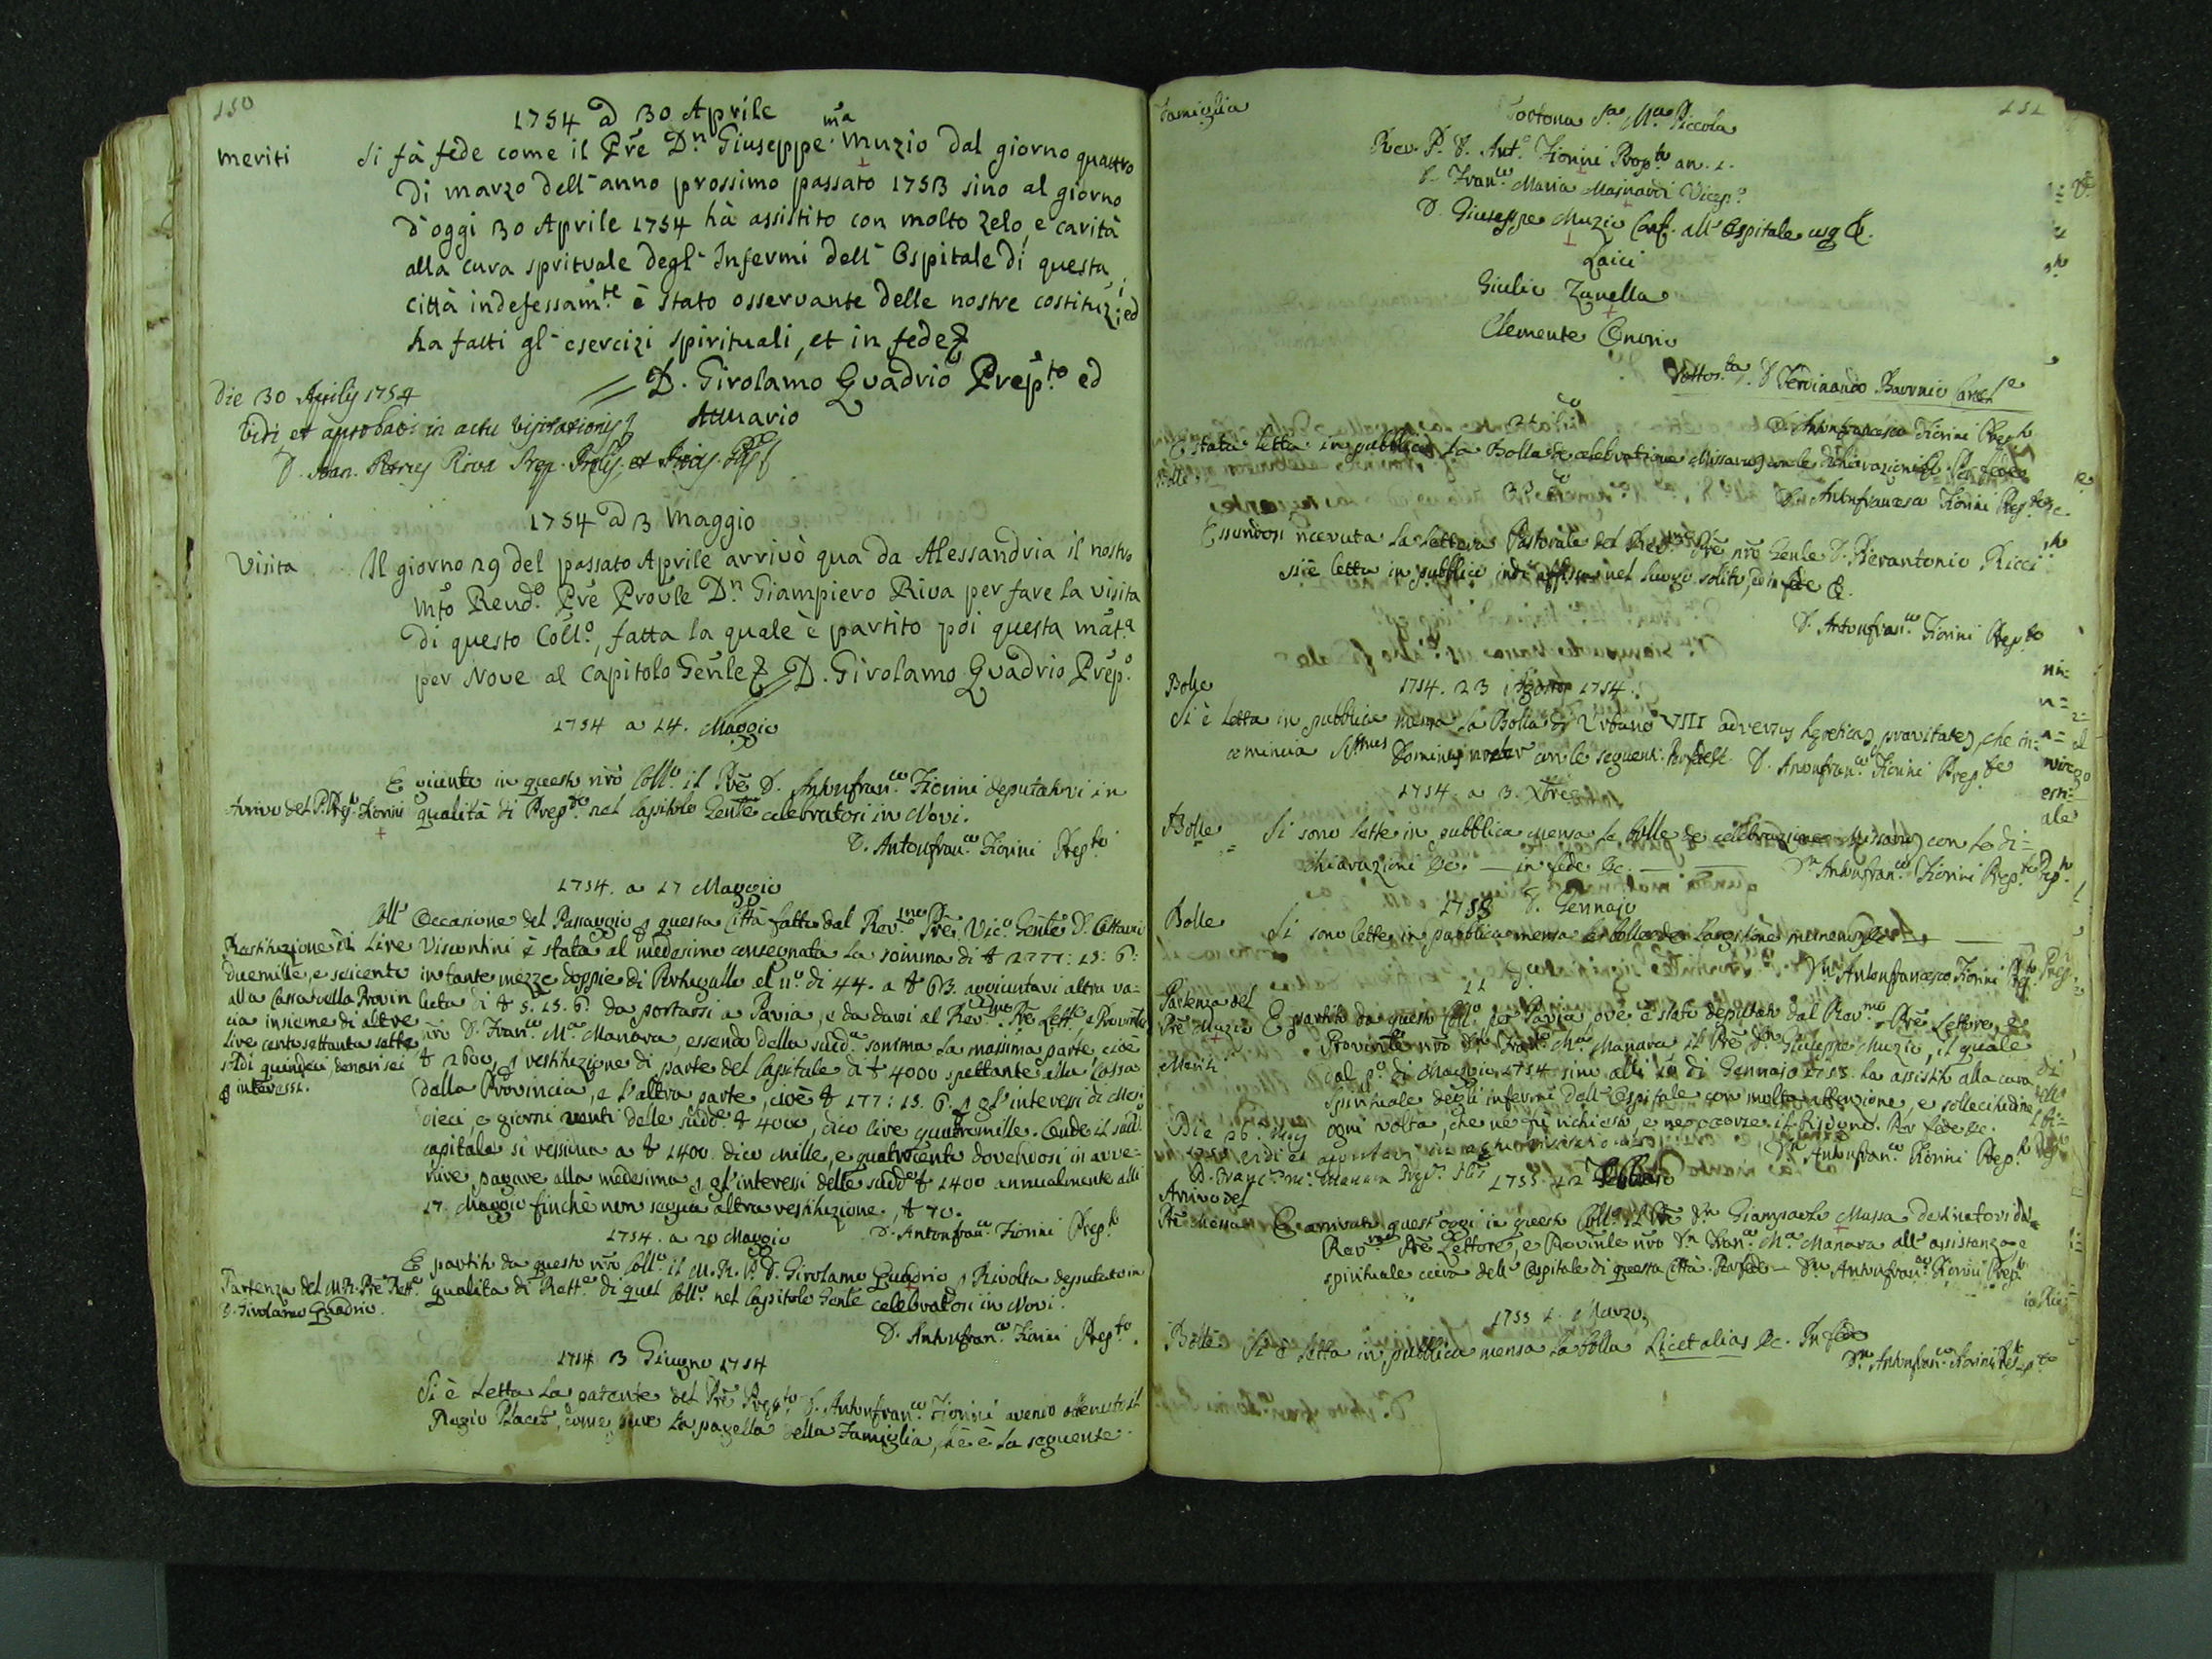 150
1754 a 30 Aprile
meriti
Si fà fede come il Pre D.n Giuseppe M.a Muzio dal giorno quattro
di marzo dell'anno prossimo passato 1753 sino al giorno
d'oggi 30 Aprile 1754 hà assistito con molto zelo, e carità
alla cura sprituale degl' Infermi dell' Ospitale di questa
città indefessam.te è stato osservante delle nostre costituz.i, ed
ha fatti gl' esercizi spirituali, et in fede
D. Girolamo Quadrio Prep.to ed
Attuario
Die 30 Aprilis 1754
Vidi, et approbavi in actu visitationis
D. Joan. Petrus Riva Prep. Prlis. et
1754 a 3 Maggio
Visita
Il giorno 29 del passato Aprile arrivò qua da Alessandria il nostro
Mto Rendo. Pre Provle D.n Giampiero Riva per fare la visita
di questo Coll.o, fatta la quale è partito poi questa mat.a
per Nove al Capitolo Genle D. Girolamo Quadrio Prep.o
1754 a 14. Maggio
E giunto in questo nro Coll.o il Pre D. Antonfran.co Fiorini deputatovi in
Arrivo del P. Prep.to Fiorini
qualità di Prep.to nel Capitolo Genle celebratosi in Novi.
D. Antonfran.co Fiorini Prep.to
1754. a 17 Maggio
Coll' Occasione del Passaggio p questa Città fatto dal Rev.mo Pre Vic.o Genle D. Ottavio
Restituzione di Live
Visconti è stata al medesimo consegnata la somma di ₶ 2777: 15: 6:
duemille, e seicento
in tante mezze doppie di Portugallo al n.o di 44. a ₶ 63. aggiuntavi altra va=
alla Cassa della Provin
luta di ₶ 5. 15. 6. da portarsi a Pavia, e da darsi al Rev.mo Pre Lett.e e Provinle
cia insieme di altre
nro D. Fran.co M.a Manara, essendo della sudd.a somma la massima parte, cioè
live centosettanta sette
₶ 2600, p restituzione di parte del Capitale di ₶ 4000 spettante alla Cassa
soldi quindeci, denari sei
p interessi.
dalla Provincia, e l'altra parte, cioè ₶ 177: 15. 6. p gl'interessi di Mesi
dieci, e giorni venti delle sudd.e ₶ 4000, dico live quatromille. Onde il sud.o
capitale si ressidua a ₶ 1400. dico mille, e quatrocento dovendosi in avve=
nire pagare alla medesima p gl'interessi delle sudd.e ₶ 1400 annualmente alli
17. Maggio finchè non segua altra restituzione, ₶ 70.
D. Antonfran.co Fiorini Prep.to
1754. a 20 Maggio
E partito da questo nro Coll.o il M. R. P. D. Girolamo Quadrio p Rivolta deputato in
Partenza del M. R. Pre Rett.e
qualita di Rett.e di quel Coll.o nel Capitolo Genle celebratosi in Novi.
D. Girolamo Quadrio.
D. Antonfran.co Fiorini Prep.to
1754 3 Giugno 1754
Si è letta la patente del Pre Prep.to D. Antonfran.co Fiorini avendo ottenuto il
Regio Placet, come pure la pagella della Famiglia, che è la seguente.
151
Famiglia
Tortona S.a M.a Piccola
Rev. P. D. Ant.o Fiorini Prep.to an. 1.
D. Fran.co Maria Mainardi Vicep.o
D. Giuseppe Muzio Conf. all' Ospitale
Laici
Giulio Zanella
Clemente Onorio
D. Ferdinando Baronio Canc.e
D. Antonfrancesco Fiorini Prep.to
E stata letta in pubblico la Bolla de celebratione Missarum con le dichiarazioni
Bolle
D. Antonfrancesco Fiorini Prep.to
Essendosi ricevuta la Lettera Pastorale del Rev.mo Pre nro Genle D. Pierantonio Ricci
si è letta in pubblico indi affissa nel luogo solito, ed in fede &.
D. Antonfran.co Fiorini Prep.to
1754. 23 Agosto 1754.
Bolle
Si è letta in pubblica mensa la Bolla di Urbano VIII adversus hereticam pravitatem, che in=
comincia SSmus Dominus noster con le seguenti. D. Antonfran.co Fiorini Prep.to
1754. a 3. Xbre
Bolle
Si sono lette in pubblica mensa le Bolle de celebrazione Missarum con le di=
chiarazioni &c. — in fede &c. — D.n Antonfran.co Fiorini Prep.to
1755 8. Gennajo
Bolle
Si sono lette in pubblica mensa le bolle de Largitione munerum &c.
D.n Antonfrancesco Fiorini Prep.to
11 d.o
Partenza del
Pre Muzio
E partito da questo Coll.o per Pavia ove è stato deputato dal Rev.mo Pre Lettore, e
Provinle nro D.n Fran.co M.a Manara il Pre D.n Giuseppe Muzio, il quale
Meriti
dal p.o di Maggio 1754 sino alli 10 di Gennajo 1755. ha assistito alla cura
spirituale degli infermi dell' Ospitale con molta attenzione, e sollecitudine
ogni volta, che ne fù richiesto, e ne occorse il bisogno. Per fede &c.
D.n Antonfran.co Fiorini Prep.to
Die 26. Maij
1755 vidi et approbavi in actu visitationis
D. Franc.s M.a Manara Prep.s
1755. 12 Febbraio
Arrivo del
Pre Massa
E arrivato quest'oggi in questo Coll.o il Pre D.n Giampaolo Massa destinatovi dal
Rev.mo Pre Lettore, e Provinle nro D.n Fran.co M.a Manara all' assistenza e
spirituale cura dell' Ospitale di questa Città. Per fede — D.n Antonfran.co Fiorini Prep.to
1755 1. Marzo
Bolle
Si è letta in pubblica mensa la bolla Licet alias &c. In fede
D.n Antonfran.co Fiorini Prep.to